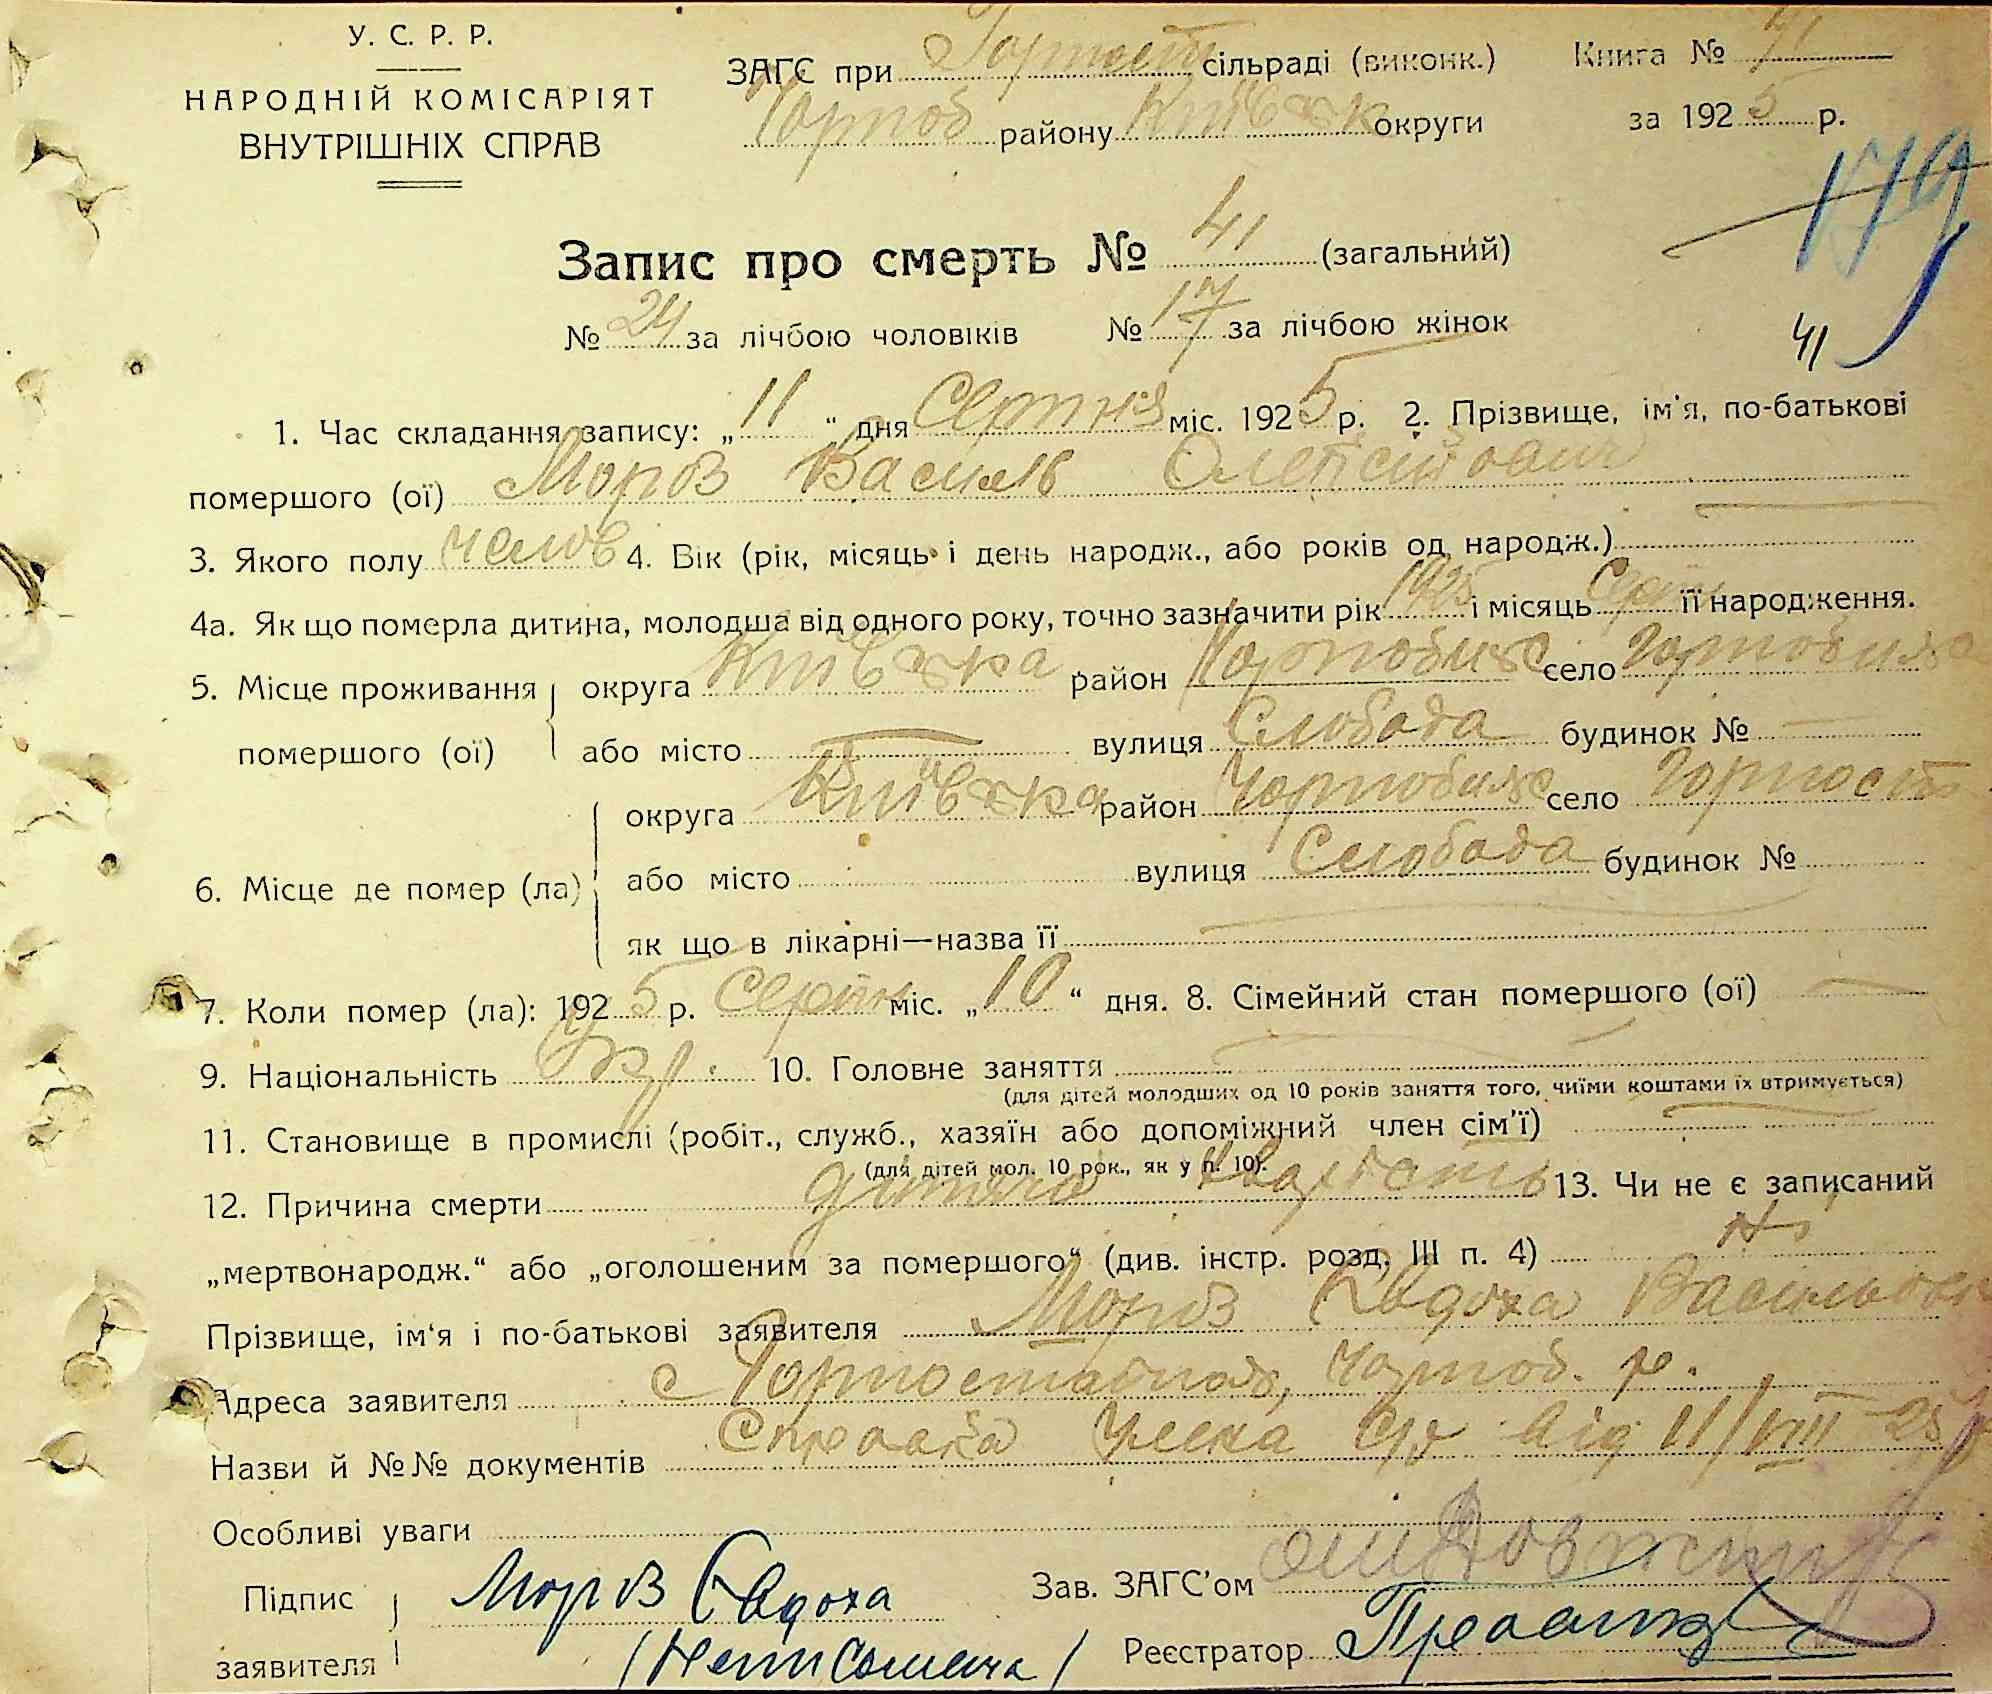 У. С. Р. Р.
НАРОДНІЙ КОМІСАРІЯТ
ВНУТРІШНІХ СПРАВ
ЗАГС при Горност сільраді (виконк.)
Чорноб району Київськ округи
Книга № 41
за 1925 р.
179
Запис про смерть № 41 (загальний)
№ 24 за лічбою чоловіків № 17 за лічбою жінок
41
1. Час складання запису: „11“ дня Серпня міс. 1925 р. 2. Прізвище, ім'я, по-батькові
помершого (ої) Мороз Василь Олексійович
3. Якого полу челов 4. Вік (рік, місяць і день народж., або років од народж.)
4а. Як що померла дитина, молодша від одного року, точно зазначити рік 1925 і місяць Серпн її народження.
5. Місце проживання округа Київська район Чорнобильс село
помершого (ої) або місто — вулиця Слобода будинок № —
округа Київська район Чорнобильс село Горност
6. Місце де помер (ла) або місто вулиця Слобода будинок №
як що в лікарні—назва її
7. Коли помер (ла): 1925 р. Серпн міс. „10“ дня. 8. Сімейний стан помершого (ої) —
9. Національність Укр. 10. Головне заняття
(для дітей молодших од 10 років заняття того, чиїми коштами їх втримується)
11. Становище в промислі (робіт., служб., хазяїн або допоміжний член сім'ї)
(для дітей мол. 10 рок., як у п. 10).
12. Причина смерти дитяча 13. Чи не є записаний
„мертвонародж.“ або „оголошеним за помершого“ (див. інстр. розд. III п. 4) Ні
Прізвище, ім'я і по-батькові заявителя Мороз Євдоха
Адреса заявителя с Горностайпол, Чорноб. р.
Назви й №№ документів Справка від 11/VIII 25
Особливі уваги
Підпис заявителя Мороз Євдоха
Зав. ЗАГС'ом
Реєстратор